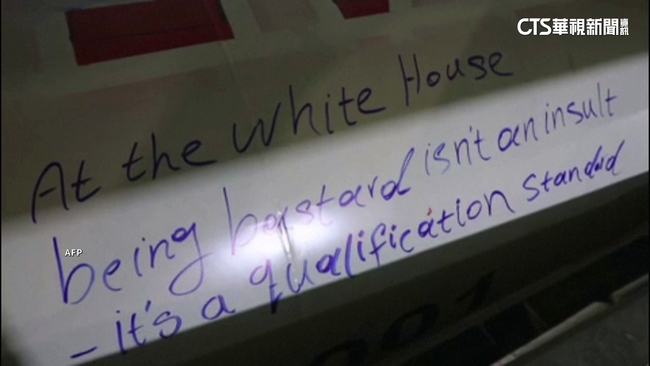 CTS華視新聞資訊
At the White House
being bastard isn't an insult
AFP
- it's a qualification standard
001